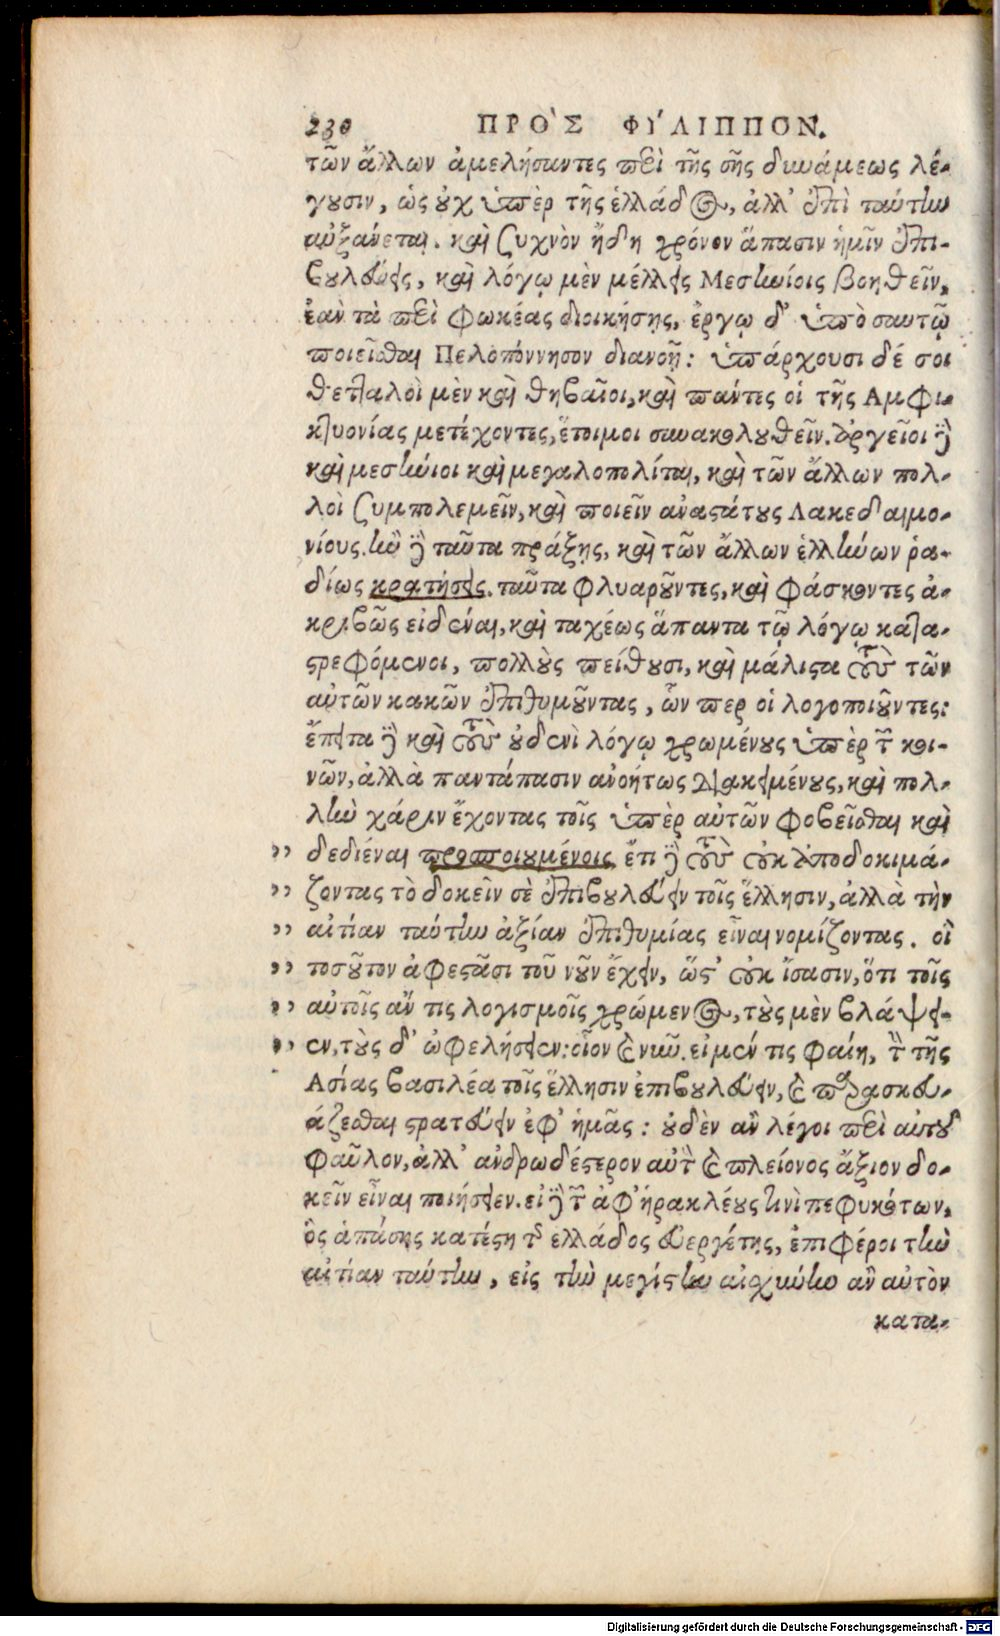 230 ΠΡΟ᾽Σ ΦΙ´ΛΙΠΠΟΝ.
τῶν ἄλλων ἀμελήσαντες περὶ τῆς σῆς δυνάμεως λέ-
γουσιν, ὡς οὐχ ὑπὲρ τῆς ἑλλάδος, ἀλλ᾽ ἐπὶ ταύτην
αὐξάνεται. καὶ συχνὸν ἤδη χρόνον ἅπασιν ἡμῖν ἐπι-
βουλεύεις, καὶ λόγῳ μὲν μέλλεις Μεσηνίοις βοηθεῖν,
ἐαν τὰ περὶ Φωκέας διοικήσης, ἔργῳ δ᾽ ὑπὸ σαυτῷ
ποιεῖσθαι Πελοπόννησον διανοῇ: ὑπάρχουσι δέ σοι
θετταλοὶ μὲν καὶ θηβαῖοι, καὶ πάντες οἱ τῆς Αμφι-
κτυονίας μετέχοντες, ἕτοιμοι συνακολουθεῖν. ἀργεῖοι δὲ
καὶ μεσήνιοι καὶ μεγαλοπολίται, καὶ τῶν ἄλλων πολ-
λοὶ συμπολεμεῖν, καὶ ποιεῖν αναστάτους Λακεδαιμο-
νίους. ἢν δὲ ταῦτα πράξης, καὶ τῶν ἄλλων ἑλλήνων ῥα-
δίως κρατήσεις. ταῦτα φλυαροῦντες, καὶ φάσκοντες ἀ-
κριβῶς εἰδέναι, καὶ ταχέως ἅπαντα τῷ λόγῳ κατα-
στρεφόμενοι, πολλοὺς πείθουσι, καὶ μάλιστα τοὺς τῶν
αὐτῶν κακῶν ἐπιθυμοῦντας, ὧν περ οἱ λογοποιοῦντες:
ἔπειτα δὲ καὶ τοὺς οὐδενὶ λόγῳ χρωμένους ὑπὲρ τῶν κοι-
νῶν, ἀλλὰ παντάπασιν ανοήτως διακειμένους, καὶ πολ-
λὴν χάριν ἔχοντας τοῖς ὑπὲρ αὐτῶν φοβεῖσθαι καὶ
,, δεδιέναι προσποιουμένοις ἔτι δὲ τοὺς οὐκ ἀποδοκιμά-
,, ζοντας τὸ δοκεῖν σὲ ἐπιβουλεύειν τοῖς ἕλλησιν, ἀλλὰ τὴν
,, αἰτίαν ταύτην ἀξίαν ἐπιθυμίας εἶναι νομίζοντας. οἳ
,, τοσοῦτον ἀφεστᾶσι τοῦ νοῦν ἔχειν, ὥστ᾽ οὐκ ἴσασιν, ὅτι τοῖς
,, αὐτοῖς ἄν τις λογισμοῖς χρώμενος, τοὺς μὲν βλάψει-
,, εν, τοὺς δ᾽ ὠφελήσειεν: οἷον καὶ νῦν. εἰ μέν τις φαίη, τὸν τῆς
Ασίας βασιλέα τοῖς ἕλλησιν ἐπιβουλεύειν, καὶ παρασκευ-
άζεσθαι στρατεύειν ἐφ᾽ ἡμᾶς: οὐδὲν αν λέγοι περὶ αὐτοῦ
φαῦλον, ἀλλ᾽ ανδρωδέστερον αὐτὸν καὶ πλείονος ἄξιον δο-
κεῖν εἶναι ποιήσειεν. εἰ δὲ τῶν ἀφ᾽ ἡρακλέους τινὶ πεφυκότων,
ὃς ἁπάσης κατέστη τῆς ελλάδος εὐεργέτης, ἐπιφέροι τὴν
αἰτίαν ταύτην, εἰς τὴν μεγίστην αἰσχύνην αν αὐτὸν
κατα-
Digitalisierung gefördert durch die Deutsche Forschungsgemeinschaft - DFG